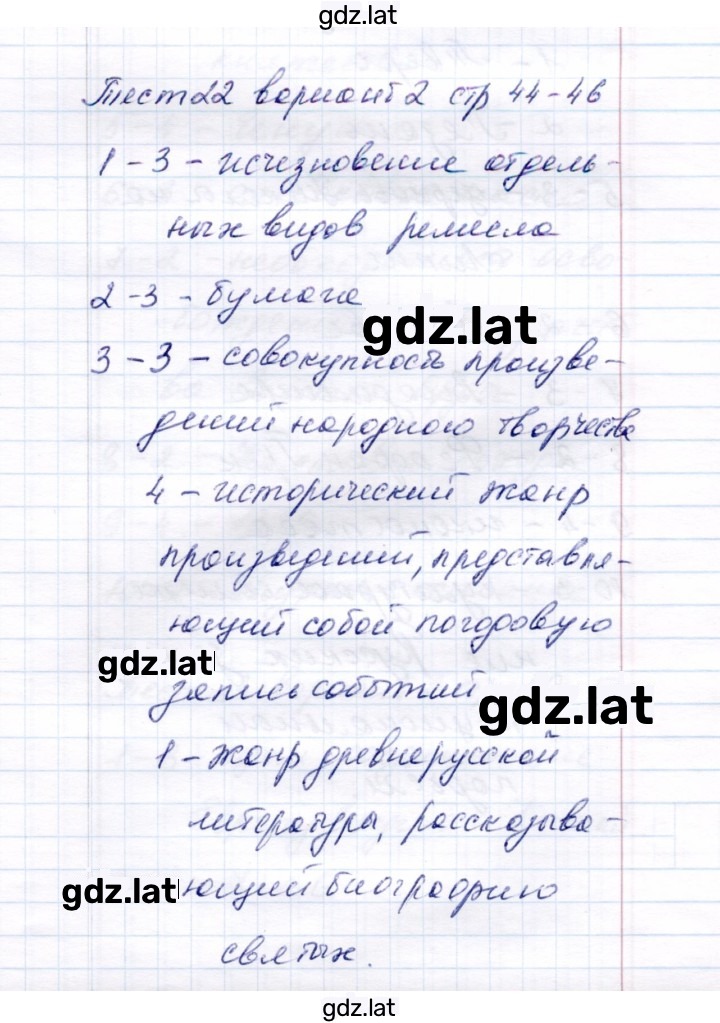 gdz.lat
Тест 22 вариант 2 стр 44-46
1 - 3 - исчезновение отдель-
ных видов ремесла
2 - 3 - бумага
gdz.lat
3 - 3 - совокупность произве-
дений народного творчества
4 - исторический жанр
произведений, представля-
ющий собой погодовую
gdz.lat
запись событий
gdz.lat
1 - жанр древнерусской
литературы, рассказыва-
gdz.lat
ющий биографию
святых.
gdz.lat